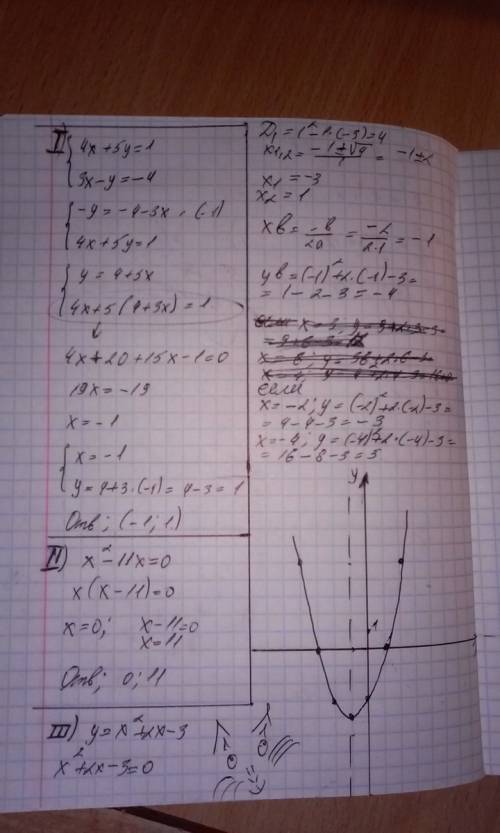 I
4x+5y=1
3x-y=-4
-y=-4-3x · (-1)
4x+5y=1
y=4+5x
4x+5(4+3x)=1
4x+20+15x-1=0
19x=-19
x=-1
x=-1
y=4+3·(-1)=4-3=1
Отв; (-1;1)
II) x²-11x=0
x(x-11)=0
x=0; x-11=0
x=11
Отв; 0; 11
III) y=x²+2x-3
x²+2x-3=0
D₁=1²-1·(-3)=4
x1,2=(-1±√4)/1=-1±2
x1=-3
x2=1
xв=-в/2a=-2/2·1=-1
yв=(-1)²+2·(-1)-3=
=1-2-3=-4
если
x=-2; y=(-2)²+2·(-2)-3=
=4-4-3=-3
x=-4; y=(-4)²+2·(-4)-3=
=16-8-3=5
y
1